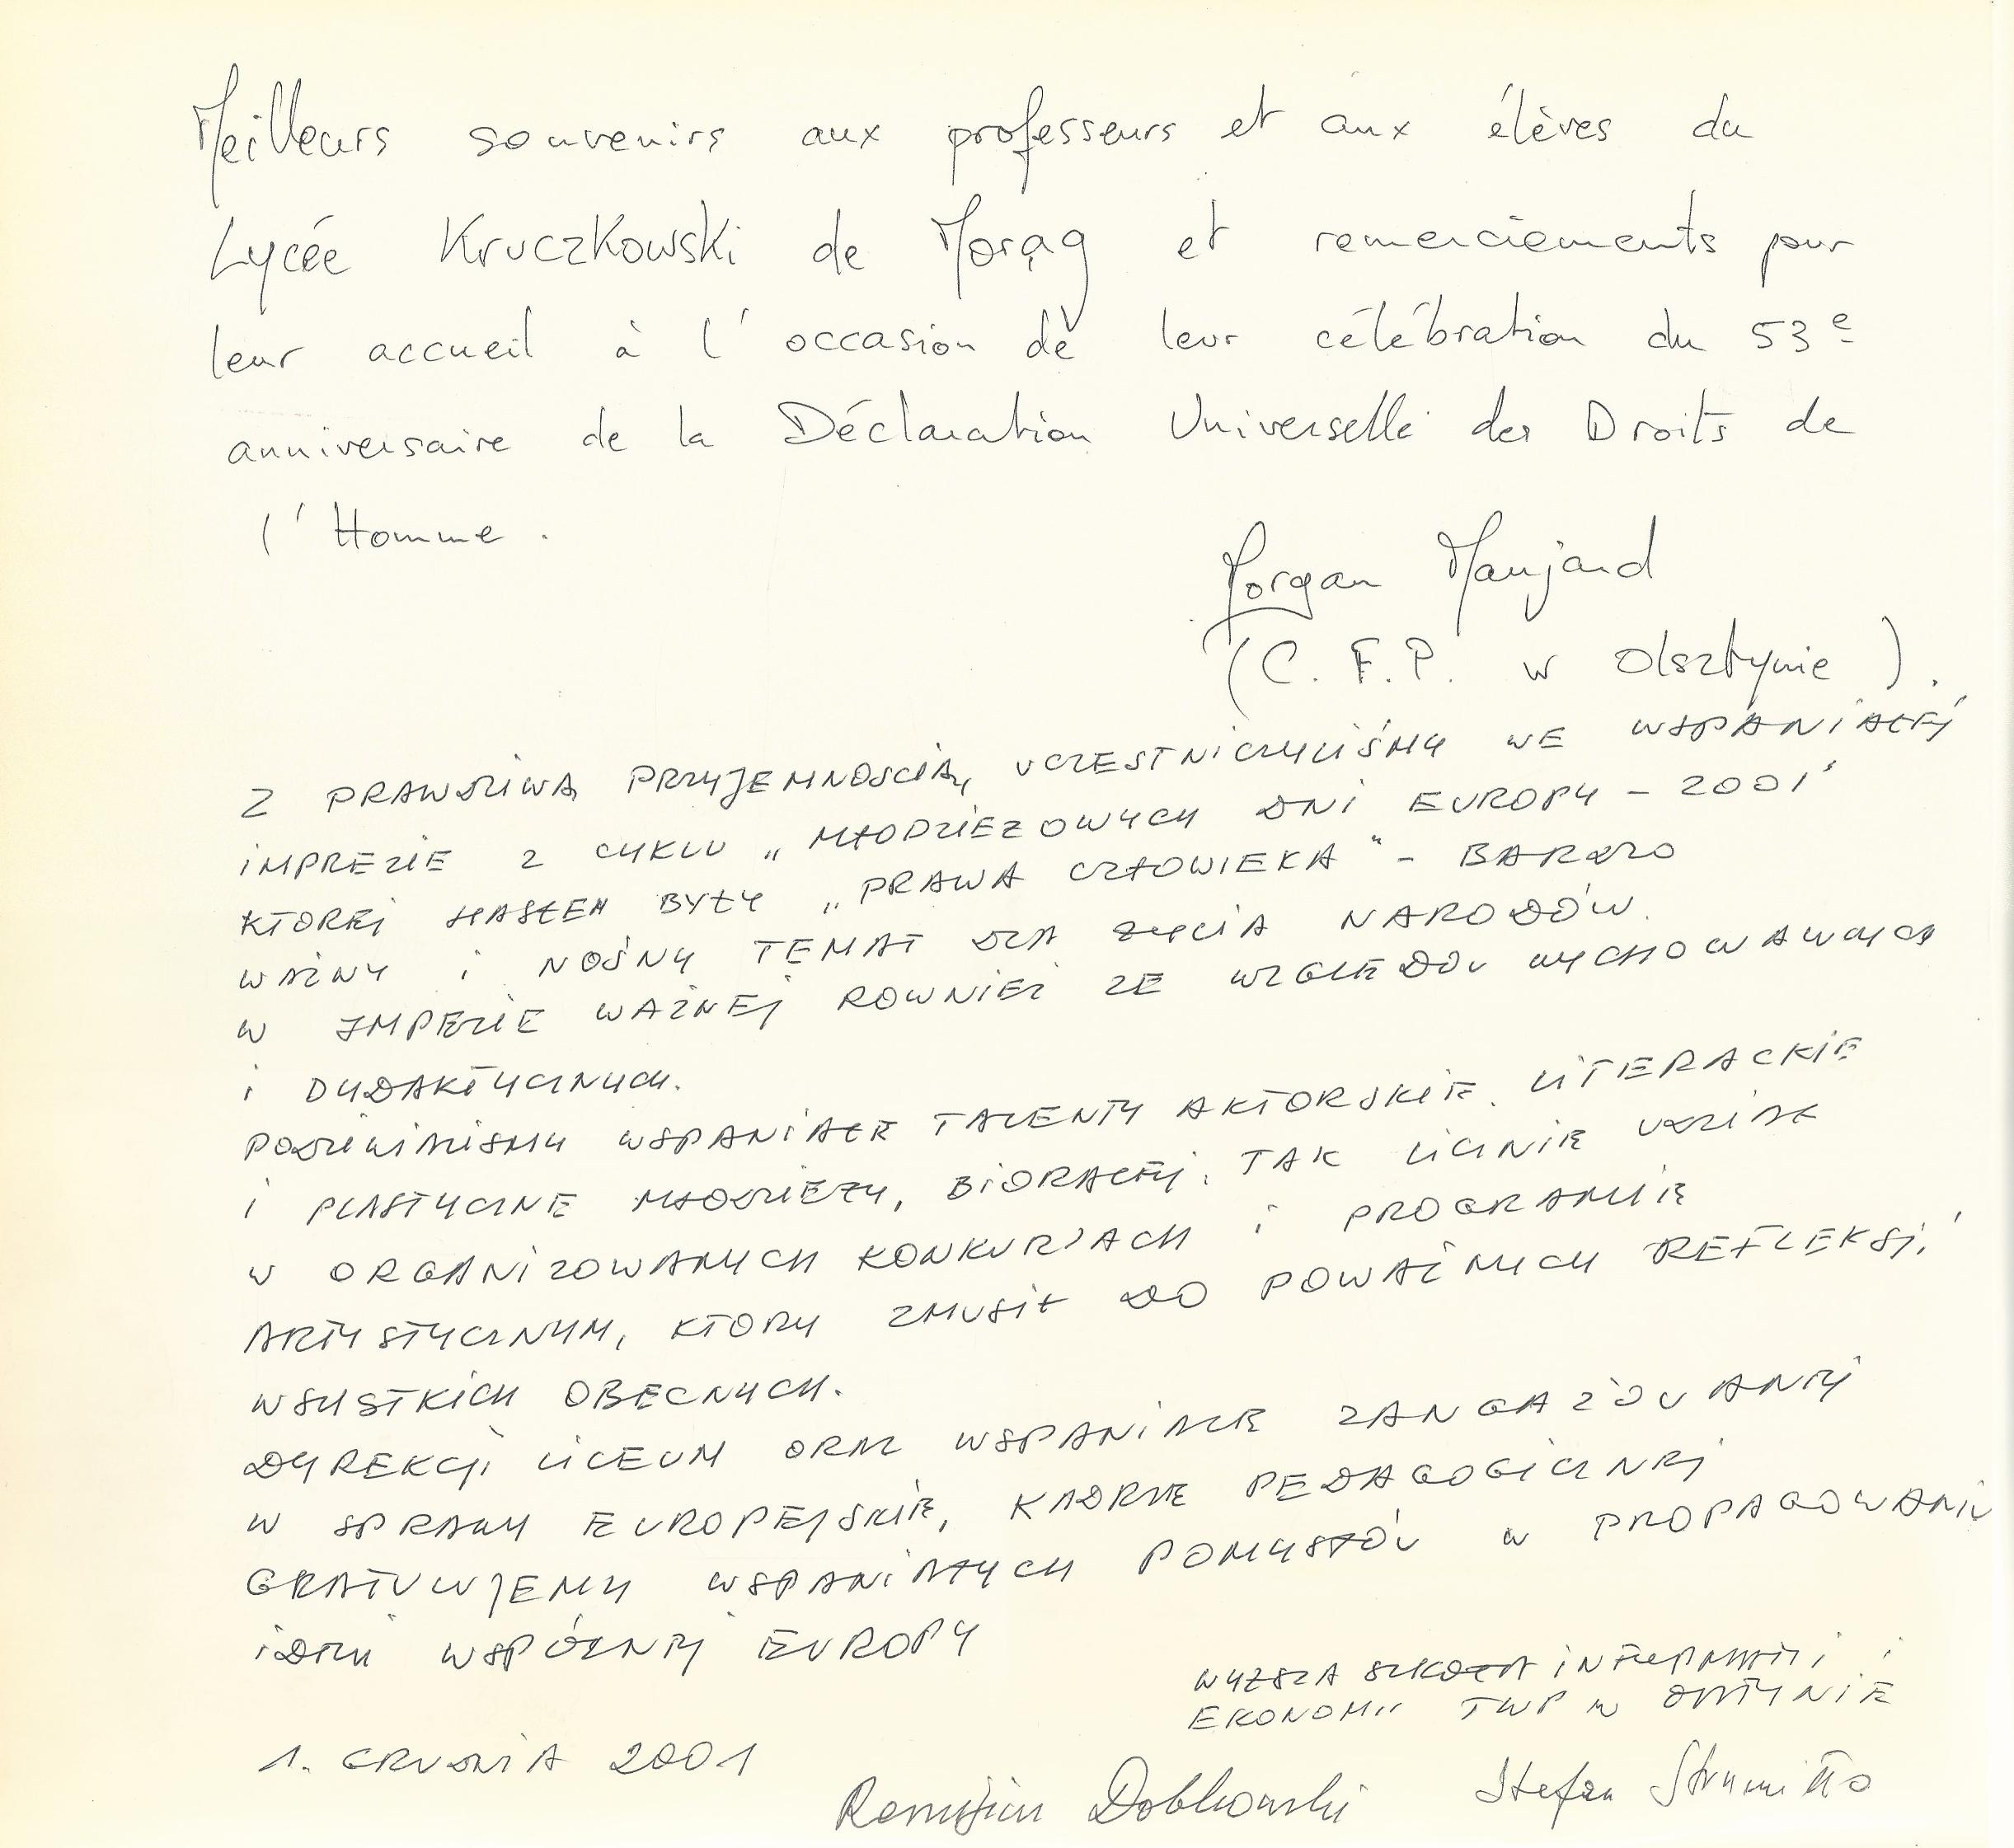 Meilleurs souvenirs aux professeurs et aux élèves du
Lycée Kruczkowski de Morąg et remerciements pour
leur accueil à l'occasion de leur célébration du 53e
anniversaire de la Déclaration Universelle des Droits de
l'Homme.
Morgan Maujard
(C.F.P. w Olsztynie).
Z PRAWDZIWĄ PRZYJEMNOSCIĄ UCZESTNICZYLIŚMY WE WSPANIAŁEJ
IMPREZIE Z CYKLU „MŁODZIEZOWYCH DNI EUROPY - 2001"
KTOREJ HASŁEM BYŁY „PRAWA CZŁOWIEKA" - BARDZO
WAŻNY I NOŚNY TEMAT DLA ŻYCIA NARODÓW.
W IMPEZIE WAŻNEJ ROWNIEŻ ZE WZGLEDOU WYCHOWAWCZYCH
I DYDAKTYCZNYCH.
PODZIWIALISMY WSPANIAŁE TALENTY AKTORSKIE, LITERACKIE
I PLASTYCZNE MŁODZIEŻY, BIORACEJ TAK LICZNIE UDZIAŁ
W ORGANIZOWANYCH KONKURSACH I PROGRAMIE
ARTYSTYCZNYM, KTORY ZMUSIŁ DO POWAŻNYCH REFLEKSJI
WSZYSTKICH OBECNYCH.
DYREKCJI LICEUM ORAZ WSPANIALE ZANGAŻOWANEJ
W SPRAWY EUROPEJSKIE, KADRZE PEDAGOGICZNEJ
GRATULUJEMY WSPANIAŁYCH POMYSŁÓW W PROPAGOWANIU
IDEI WSPÓLNEJ EUROPY
WYŻSZA SZKOŁA INFORMATYKI I
EKONOMII TWP W OLSZTYNIE
1. GRUDNIA 2001
Remigiusz Dobkowski Stefan Strumiłło